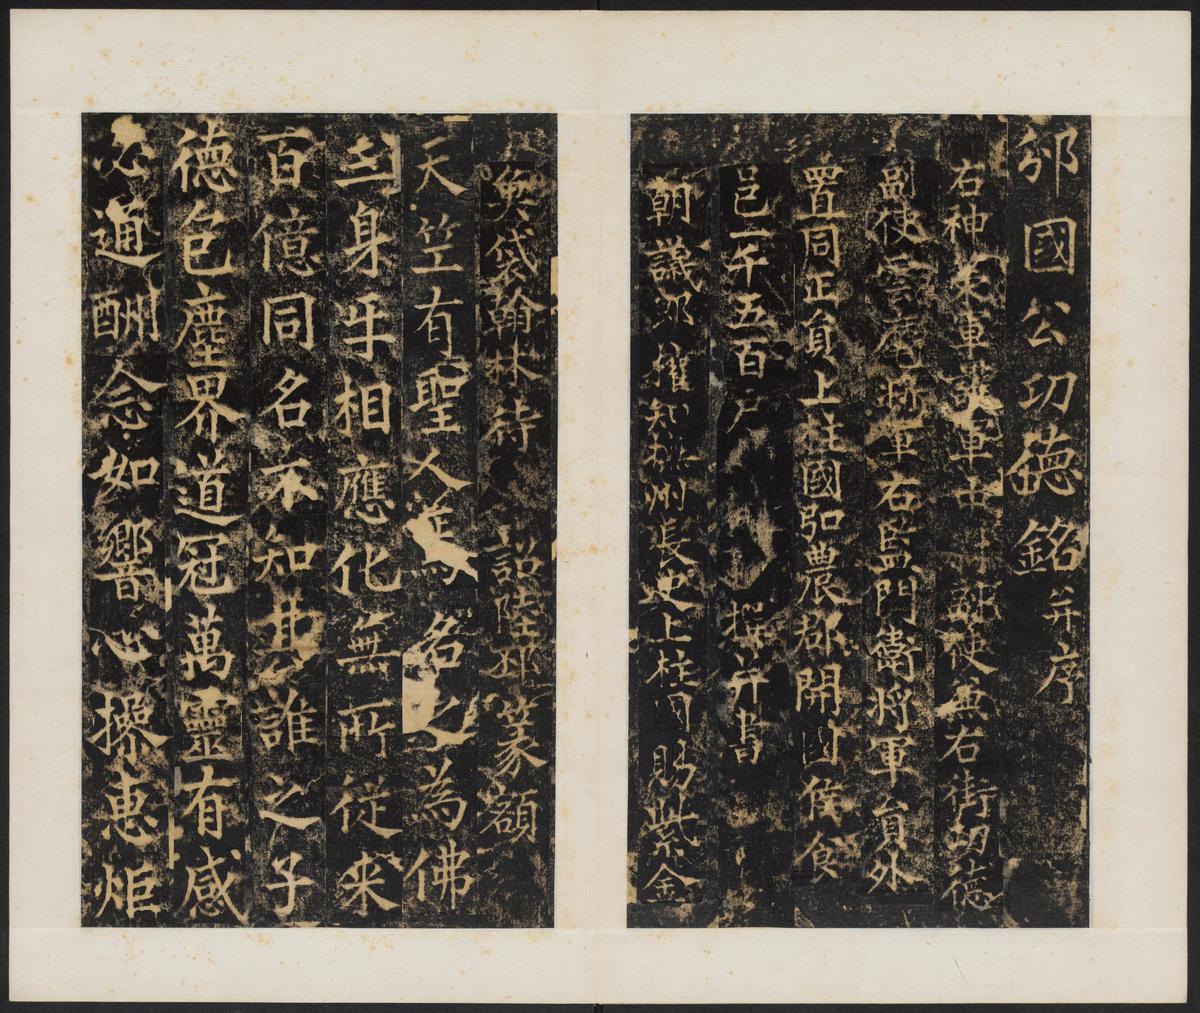 邠國公功德銘并序
右神策軍護軍中尉副使兼右街功德
副使雲麾將軍右監門衛將軍員外
置同正員上柱國弘農郡開國侯食
邑一千五百戶 撰并書
朝議郎權知撫州長史上柱國賜紫金
魚袋翰林待詔陸邳篆額
天竺有聖人焉名之為佛
三身牙相應化無所從来
百億同名不知弗誰之子
德包塵界道冠萬靈有感
必通酬念如響心操惠炬